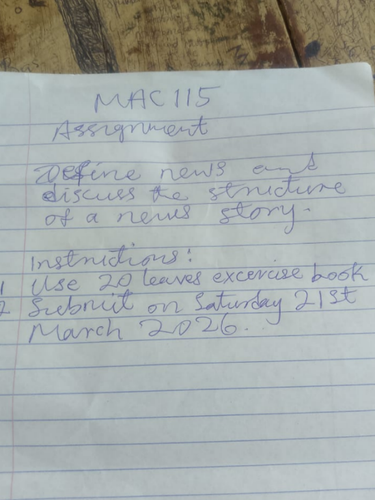 MAC 115
Assignment
Define news and
discuss the structure
of a news story.
Instructions:
1 Use 20 leaves excercise book
2 Submit on Saturday 21st
March 2026.